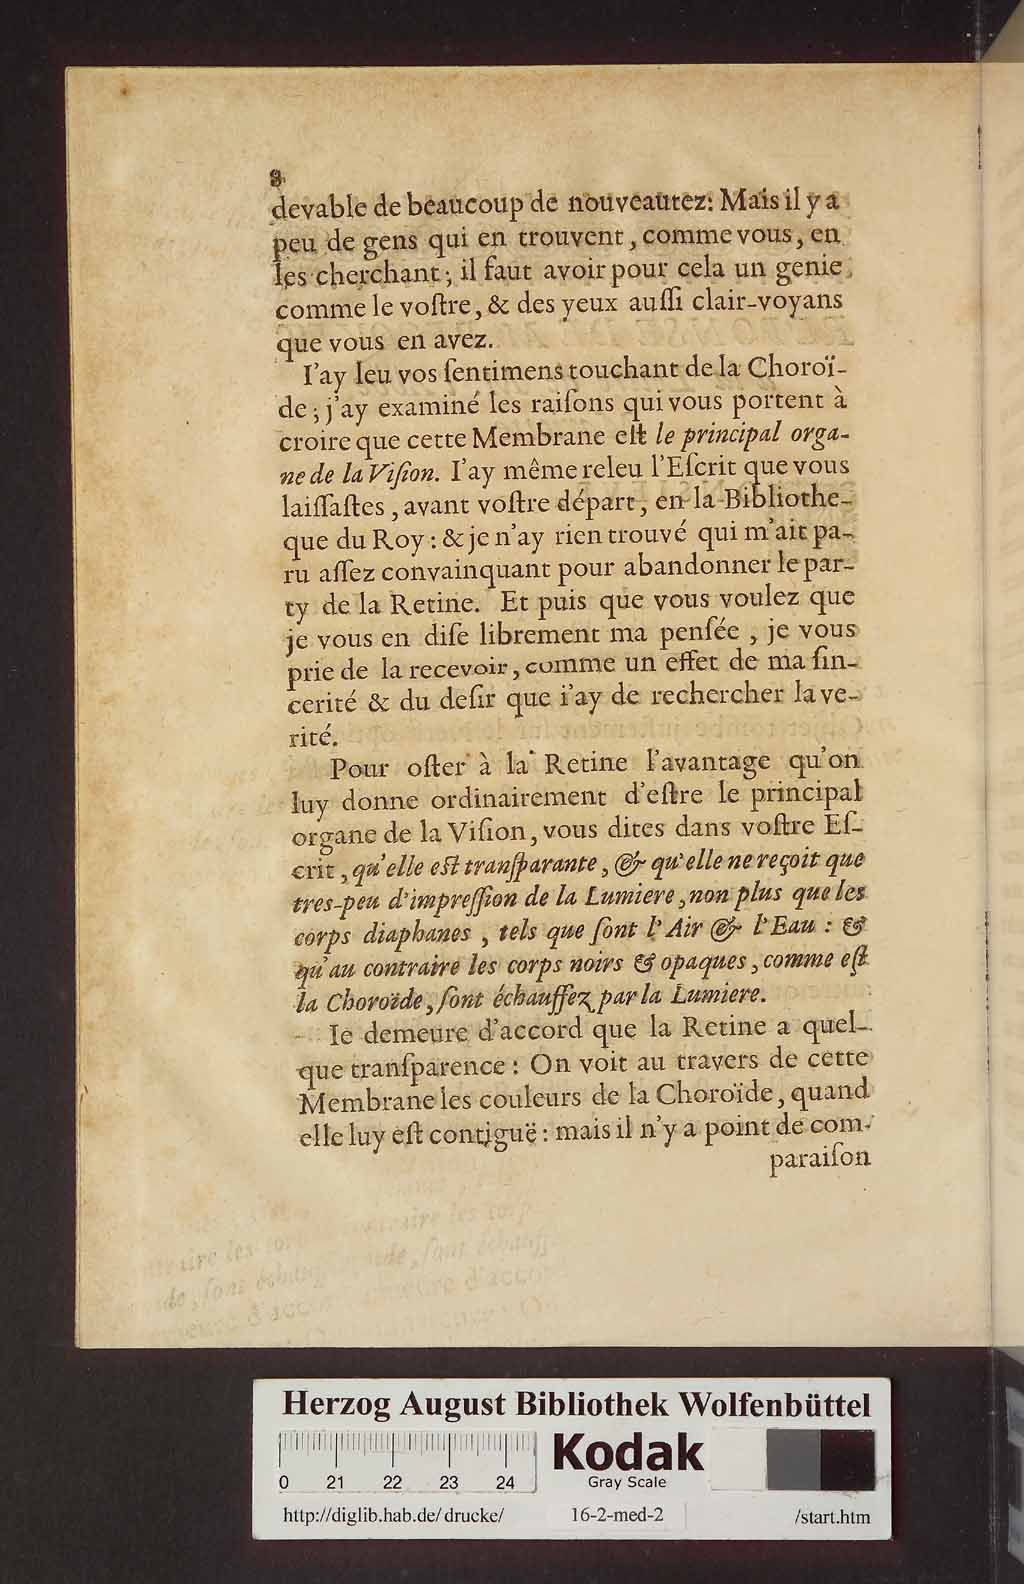 8
devable de beaucoup de nouveautez: Mais il y a
peu de gens qui en trouvent, comme vous, en
les cherchant; il faut avoir pour cela un genie
comme le voſtre, & des yeux auſſi clair-voyans
que vous en avez.
I'ay leu vos ſentimens touchant de la Choroï-
de; j'ay examiné les raiſons qui vous portent à
croire que cette Membrane eſt le principal orga-
ne de la Viſion. I'ay même releu l'Eſcrit que vous
laiſſaſtes, avant voſtre départ, en la Bibliothe-
que du Roy: & je n'ay rien trouvé qui m'ait pa-
ru aſſez convainquant pour abandonner le par-
ty de la Retine. Et puis que vous voulez que
je vous en diſe librement ma penſée, je vous
prie de la recevoir, comme un effet de ma ſin-
cerité & du deſir que i'ay de rechercher la ve-
rité.
Pour oſter à la Retine l'avantage qu'on
luy donne ordinairement d'eſtre le principal
organe de la Viſion, vous dites dans voſtre Eſ-
crit, qu'elle eſt tranſparante, & qu'elle ne reçoit que
tres-peu d'impreſſion de la Lumiere, non plus que les
corps diaphanes, tels que ſont l'Air & l'Eau: &
qu'au contraire les corps noirs & opaques, comme eſt
la Choroïde, ſont échauffez par la Lumiere.
Ie demeure d'accord que la Retine a quel-
que tranſparence: On voit au travers de cette
Membrane les couleurs de la Choroïde, quand
elle luy eſt contiguë: mais il n'y a point de com-
paraiſon
Herzog August Bibliothek Wolfenbüttel
0 21 22 23 24
Kodak
Gray Scale
http://diglib.hab.de/drucke/ 16-2-med-2 /start.htm